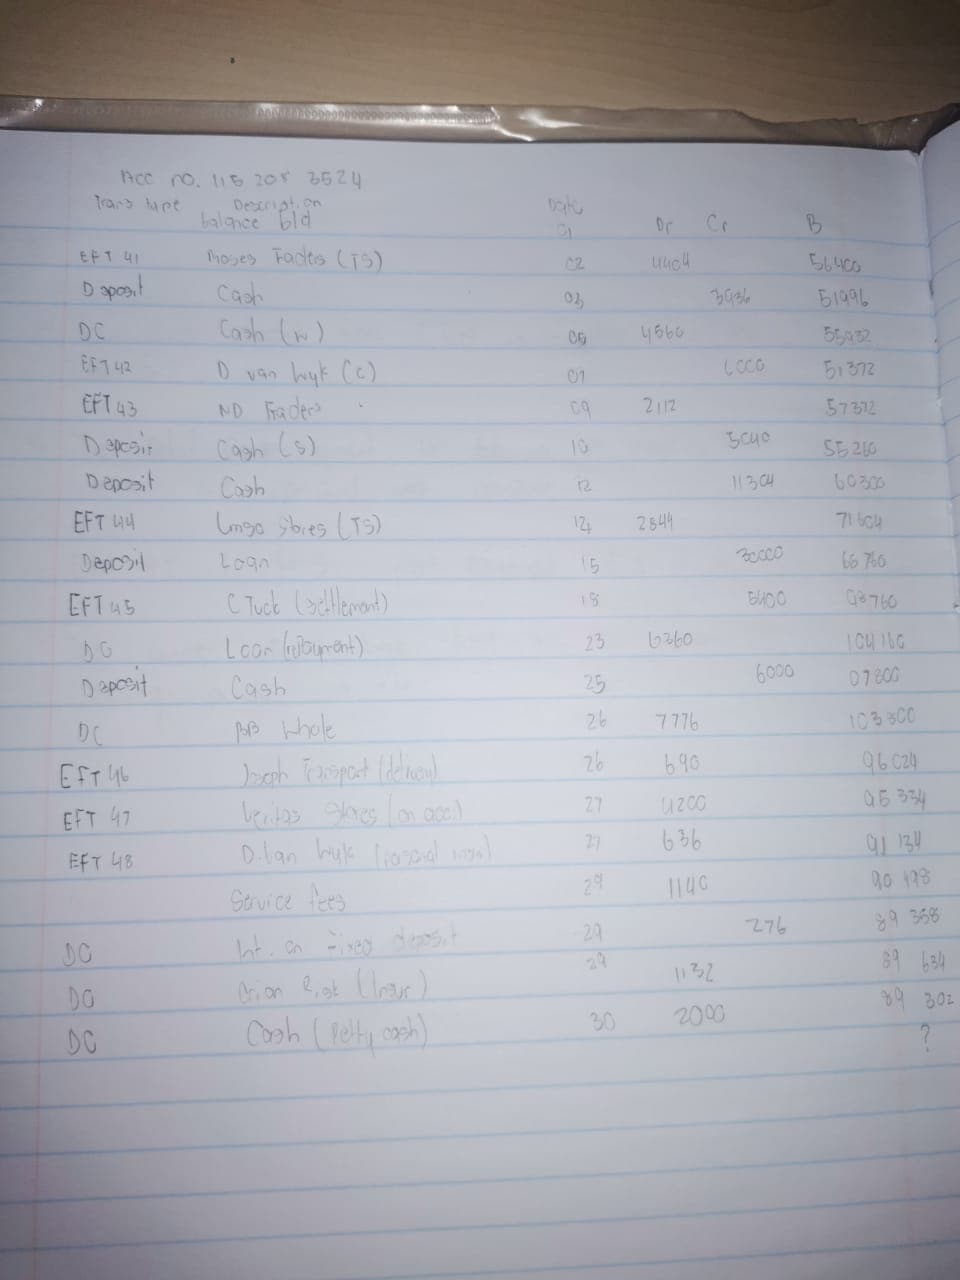 Acc no. 115 208 3524
Trans type Description Date Dr Cr B
balance b/d 01
EFT 41 Moses Traders (TS) 02 4404 56400
Deposit Cash 03 3936 51996
DC Cash (w) 05 4560 55932
EFT 42 D van Wyk (C) 07 6000 51372
EFT 43 ND Traders 09 2112 57372
Deposit Cash (S) 10 5040 55260
Deposit Cash 12 11304 60300
EFT 44 Stores (TS) 12 2844 71604
Deposit Loan 15 30000 68760
EFT 45 C Tuck (settlement) 18 5400 98760
DC Loan (repayment) 23 6360 104160
Deposit Cash 25 6000 97800
DC BB Whole 26 7776 103800
EFT 46 Joseph Transport (delivery) 26 690 96024
EFT 47 Veritas Stores (on acc.) 27 4200 95 334
EFT 48 D. Van Wyk 27 636 91 134
Service fees 29 1140 90 498
DC Int. on Fixed deposit 29 276 89 358
DO Orion Risk (Insur) 29 1132 89 634
DC Cash (Petty cash) 30 2000 89 302
?